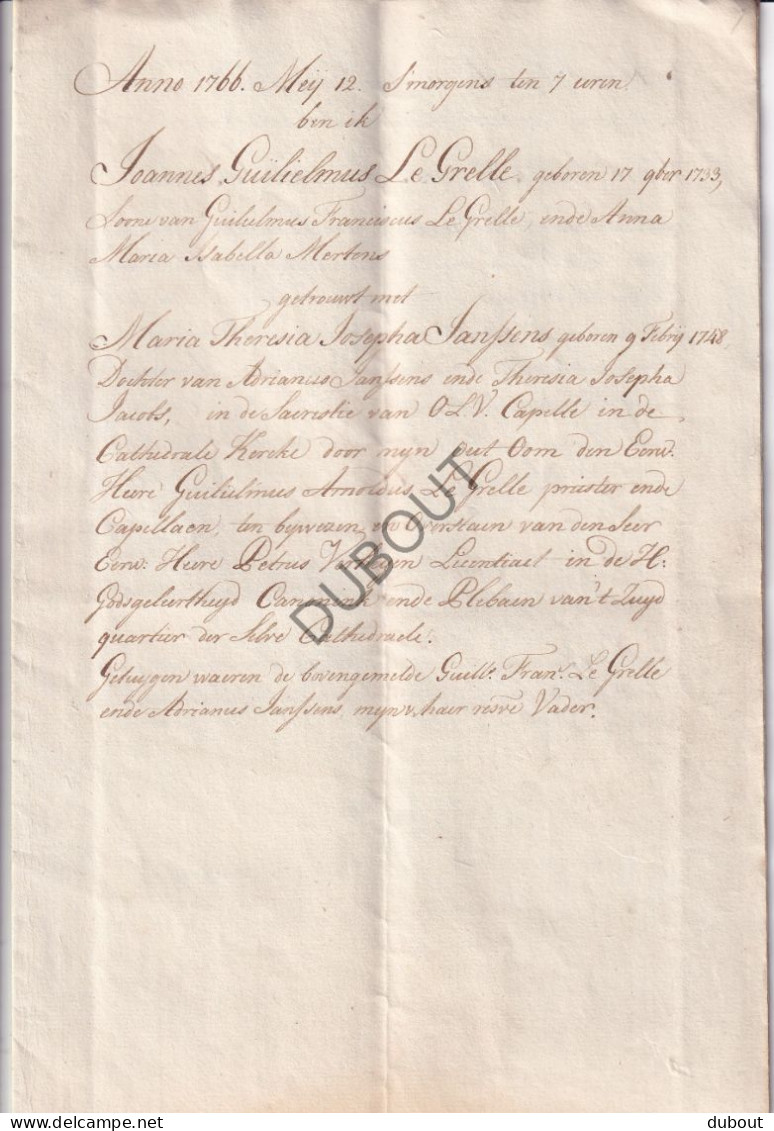 Anno 1766. Meÿ 12. S'morgens ten 7 uren
ben ik
Joannes Guilielmus Le Grelle, geboren 17 9ber 1733,
Soone van Guilielmus Franciscus Le Grelle, ende Anna
Maria Isabella Mertens
getrouwt met
Maria Theresia Josepha Janssens geboren 9 Febrij 1748,
Dochter van Adrianus Janssens ende Theresia Josepha
Jacobs, in de Sacristie van O.L.V. Capelle in de
Cathedrale Kercke door mijn Oom den Eerw.
Heere Guilielmus Arnoldus Le Grelle priester ende
Capellaen, ten bywezen en Overstaen van den Seer
Eerw: Heere Petrus Licentiaet in de H.
Godsgeleertheyd Canonink ende Plebaen van't Zuyd
quartier der Selve Cathedraele.
Getuygen waeren de bovengemelde Guill. Fran. Le Grelle
ende Adrianus Janssens, mijn haer Vader.
DUBOUT
delcampe.net
dubout